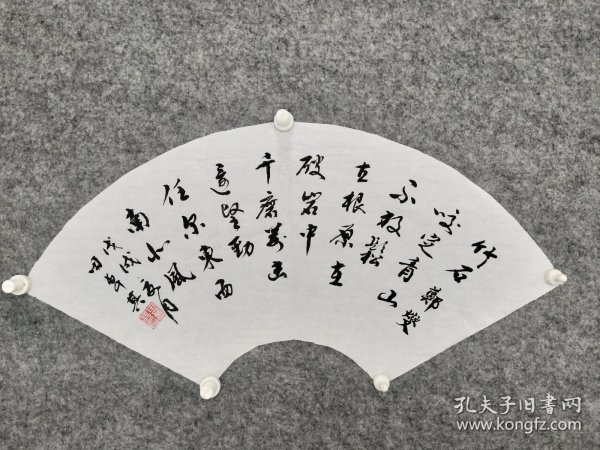 竹石 鄭燮
咬定青山
不放鬆
立根原在
破岩中
千磨萬击
還堅勁
任尔東西
南北風
戊戌夏月
田
孔夫子旧書网
www.kongfz.com